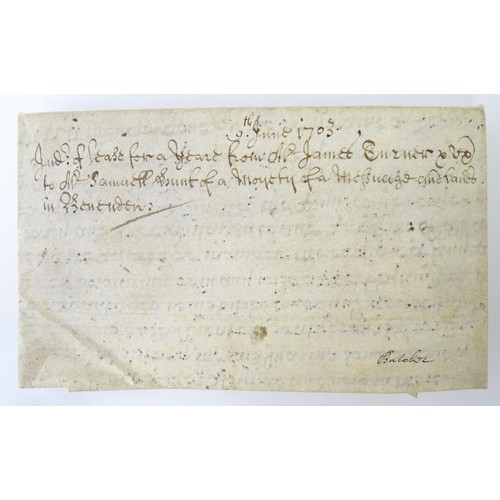 9th June 1703
Indre of lease for a yeare from Mr James Turner & Ux
to Mr Samuell Hunt of a Moyety of a Messuage and lands
in Benenden: